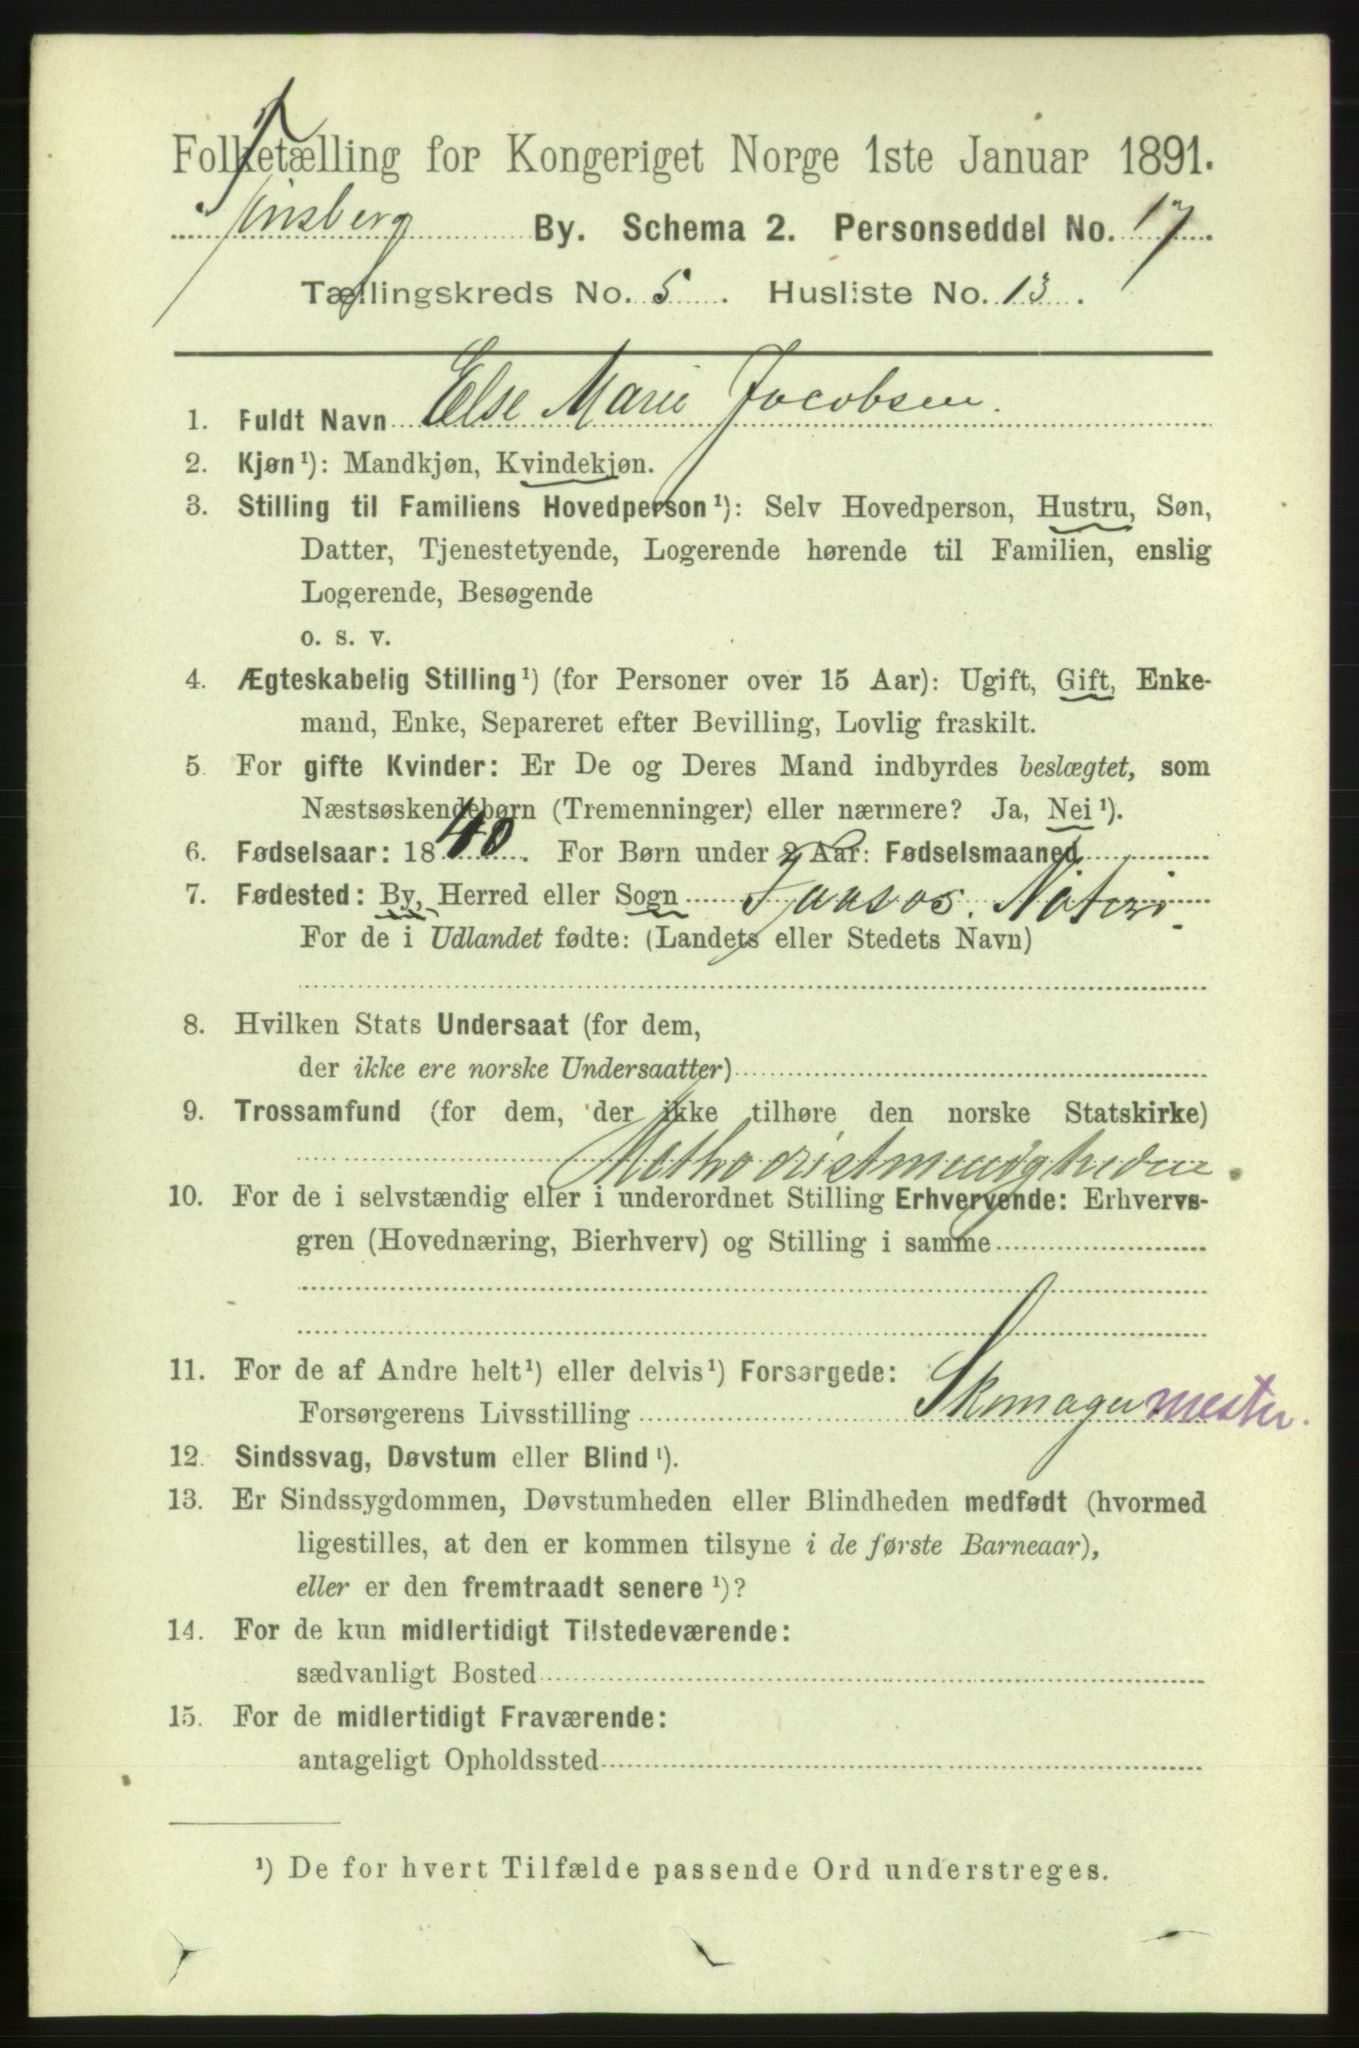 Folketælling for Kongeriget Norge 1ste Januar 1891.
Tønsberg By. Schema 2. Personseddel No. 17.
Tællingskreds No. 5. Husliste No. 13.
1. Fuldt Navn Else Marie Jacobsen.
2. Kjøn ¹): Mandkjøn, Kvindekjøn.
3. Stilling til Familiens Hovedperson ¹): Selv Hovedperson, Hustru, Søn,
Datter, Tjenestetyende, Logerende hørende til Familien, enslig
Logerende, Besøgende
o. s. v.
4. Ægteskabelig Stilling ¹) (for Personer over 15 Aar): Ugift, Gift, Enke-
mand, Enke, Separeret efter Bevilling, Lovlig fraskilt.
5 For gifte Kvinder: Er De og Deres Mand indbyrdes beslægtet, som
Næstsøskendebørn (Tremenninger) eller nærmere? Ja, Nei ¹).
6. Fødselsaar: 1840. For Børn under 2 Aar: Fødselsmaaned
7. Fødested: By, Herred eller Sogn
For de i Udlandet fødte: (Landets eller Stedets Navn)
8. Hvilken Stats Undersaat (for dem,
der ikke ere norske Undersaatter)
9. Trossamfund (for dem, der ikke tilhøre den norske Statskirke)
Methodistmenigheden.
10. For de i selvstændig eller i underordnet Stilling Erhvervende: Erhvervs-
gren (Hovednæring, Bierhverv) og Stilling i samme
11. For de af Andre helt ¹) eller delvis ¹) Forsørgede:
Forsørgerens Livsstilling Skomagermester.
12. Sindssvag, Døvstum eller Blind ¹).
13. Er Sindssygdommen, Døvstumheden eller Blindheden medfødt (hvormed
ligestilles, at den er kommen tilsyne i de første Barneaar),
eller er den fremtraadt senere ¹)?
14. For de kun midlertidigt Tilstedeværende:
sædvanligt Bosted
15. For de midlertidigt Fraværende:
antageligt Opholdssted
¹) De for hvert Tilfælde passende Ord understreges.